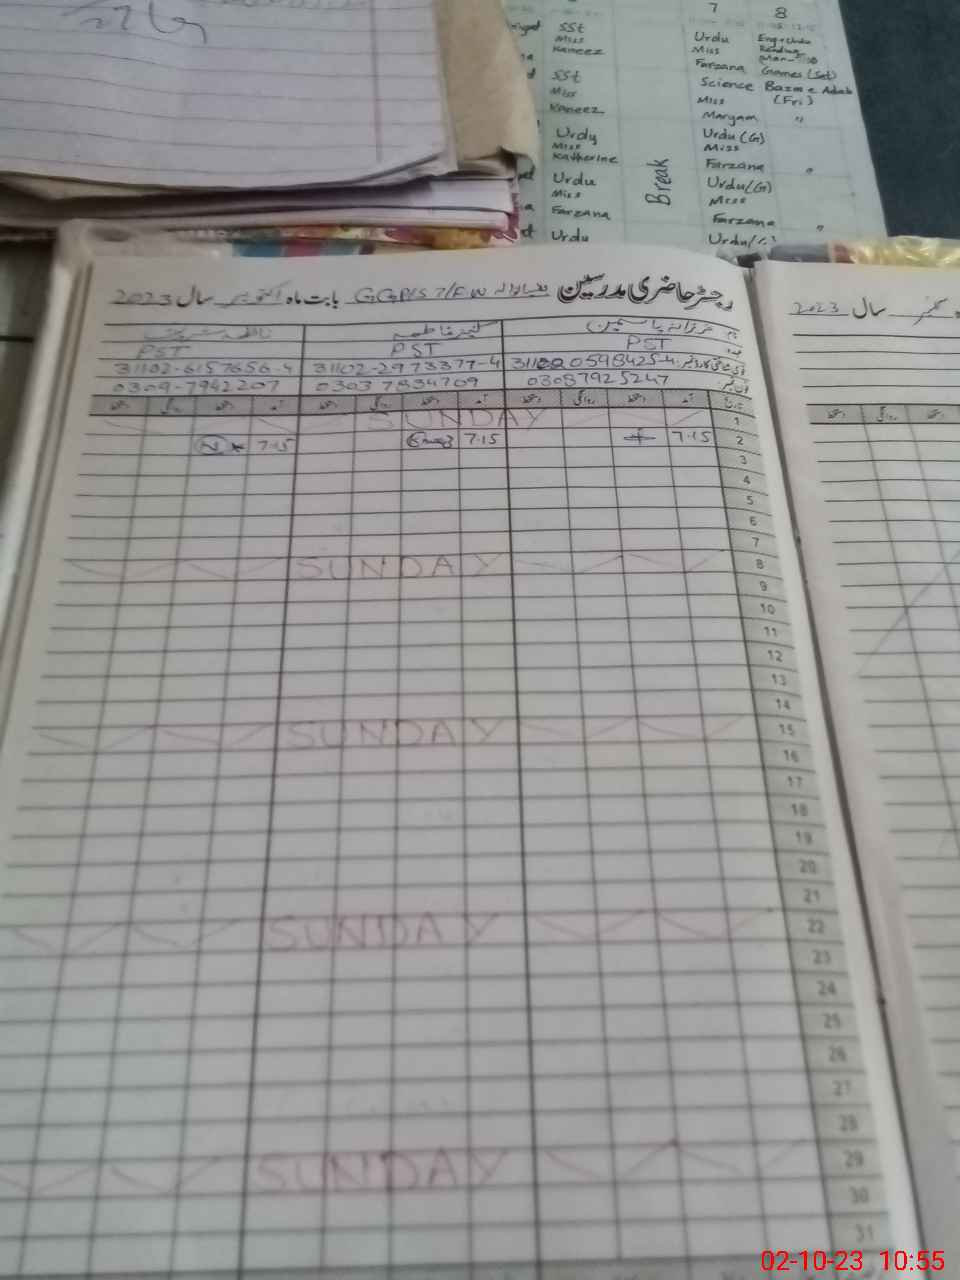 7 8
SSt Urdu Eng+Urdu
Miss Miss Reading
Kaneez Farzana Games (Sat)
SSt Science Bazm e Adab
Miss Miss (Fri)
Kaneez Maryam "
Urdu Urdu (G)
Miss Miss
Katherine Farzana "
Break
Urdu Urdu/(G)
Miss Miss
Farzana Farzana "
Urdu Urdu/
رجسٹر حاضری مدرسین GGP/S 7/FW بابت ماہ اکتوبر سال 2023
سال 2023
نام فرزانہ یاسمین کنیز فاطمہ
عہدہ PST PST PST
قومی شناختی کارڈ نمبر 31102-2973377-4 31102-6157656-4
فون نمبر 03087925247 03037834709 0309-7942207
تاریخ آمد دستخط روانگی دستخط آمد دستخط روانگی دستخط آمد دستخط روانگی دستخط
دستخط روانگی دستخط
1 SUNDAY
2 7.15 7.15 7.15
3
4
5
6
7
8 SUNDAY
9
10
11
12
13
14
15 SUNDAY
16
17
18
19
20
21
22 SUNDAY
23
24
25
26
27
28
29 SUNDAY
30
31
02-10-23 10:55